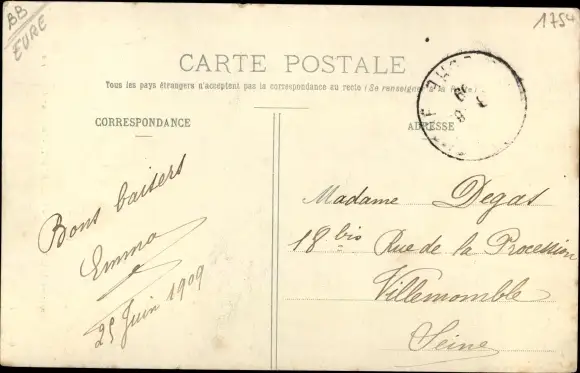 BB
EURE
1754
CARTE POSTALE
Tous les pays étrangers n'acceptent pas la correspondance au recto (Se renseigner à la Poste)
CORRESPONDANCE
ADRESSE
Bons baisers
Emma
25 Juin 1909
Madame Degas
18 bis Rue de la Procession
Villemomble
Seine